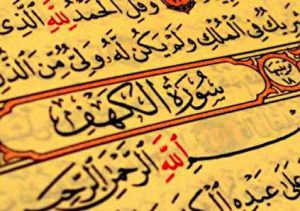 وَقُلِ الْحَمْدُ لِلَّهِ الَّذِي
رِيكٌ فِي الْمُلْكِ وَلَمْ يَكُن لَّهُ وَلِيٌّ مِّنَ الذُّلِّ
سُورَةُ الْكَهْفِ
اللَّهِ الرَّحْمَٰنِ الرَّحِيمِ
عَلَىٰ عَبْدِهِ